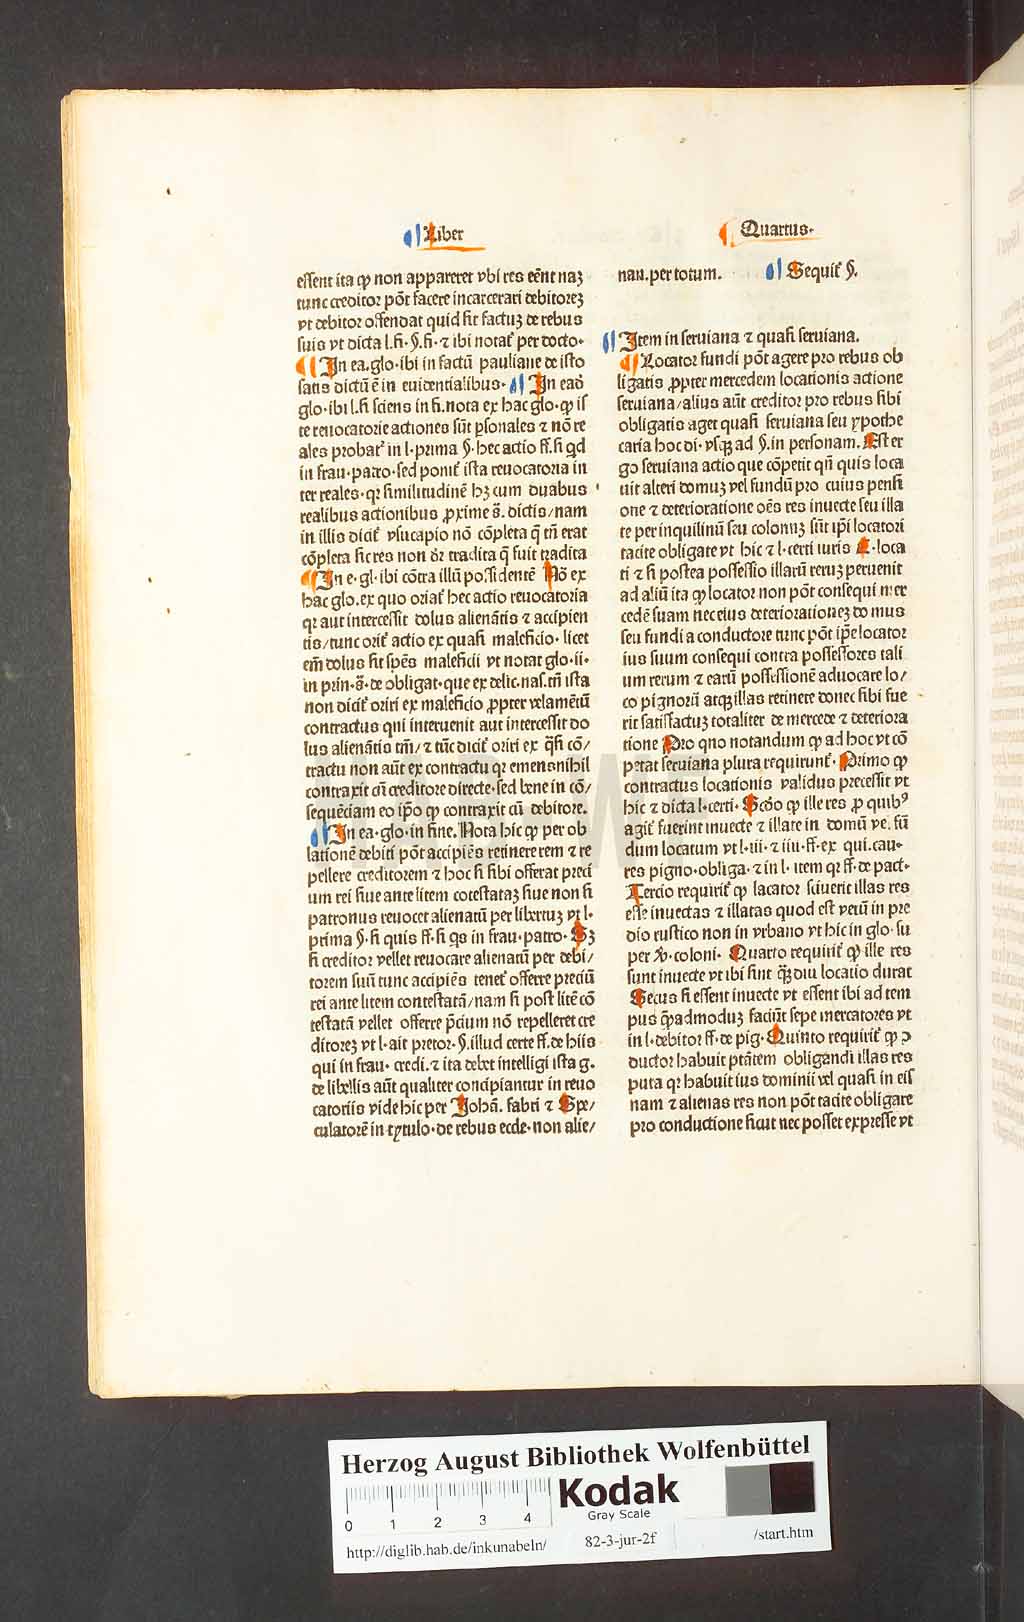 Liber
Quartus.
essent ita ꝙ non appareret vbi res eēnt naꝫ
tunc creditor pōt facere incarcerari debitoreꝫ
vt debitor ostendat quid sit factuꝫ de rebus
suis vt dicta l.fi.§.fi.⁊ ibi notat᷑ per docto.
¶ In ea.glo.ibi in factū pauliane de isto
satis dictū ē in euidentialibus. ¶ In eađ
glo.ibi l.fi sciens in fi.nota ex hac glo.ꝙ is
te reuocatorie actiones sūt ꝑsonales ⁊ nō re
ales probat᷑ in l.prima §.hec actio ff.si qd
in frau.patro.sed ponit᷑ ista reuocatoria in
ter reales.qꝛ similitudinē hꝫ cum duabus
realibus actionibus ꝓxime s̄.dictis/nam
in illis dicit᷑ vsucapio nō cōpleta q̄ tn̄ erat
cōpleta sic res non dꝛ tradita q̄ fuit tradita
¶ In e.gl.ibi cōtra illū possidentē Nō ex
hac glo.ex quo oriat᷑ hec actio reuocatoria
qꝛ aut intercessit dolus alienātis ⁊ accipien
tis/tunc orit᷑ actio ex quasi maleficio.licet
em̄ dolus sit spēs maleficii vt notat glo.ii.
in prin.s̄.de obligat.que ex delic.nas.tn̄ ista
non dicit᷑ oriri ex maleficio ꝓpter velamētū
contractus qui interuenit aut intercessit do
lus alienātis tm̄/⁊ tūc dicit᷑ oriri ex q̄si cō/
tractu non aūt ex contractu qꝛ emens nihil
contraxit cū creditore directe.sed bene in cō/
sequētiam eo ip̄o ꝙ contraxit cū debitore.
¶ In ea.glo.in fine. Nota hic ꝙ per ob
lationē debiti pōt accipiēs retinere rem ⁊ re
pellere creditorem ⁊ hoc si sibi offerat preci
um rei siue ante litem cōtestataꝫ siue non si
patronus reuocet alienatū per libertuꝫ vt l.
prima §.si quis ff.si qs in frau.patro. Sꝫ
si creditor vellet reuocare alienatū per debi/
torem suū tunc accipiēs tenet᷑ offerre preciū
rei ante litem contestatā/nam si post litē cō
testatā vellet offerre p̄cium nō repelleret cre
ditoreꝫ vt l.ait pretor.§.illud certe ff.de hiis
qui in frau.credi.⁊ ita debet intelligi ista g.
de libellis aūt qualiter concipiantur in reuo
catoriis vide hic per Johā.fabri ⁊ Spe/
culatorē in tytulo.de rebus eccle.non alie/
nan.per totum. ¶ Sequit᷑ §.
¶ Item in seruiana ⁊ quasi seruiana.
¶ Locator fundi pōt agere pro rebus ob
ligatis ꝓpter mercedem locationis actione
seruiana/alius aūt creditor pro rebus sibi
obligatis aget quasi seruiana seu ypothe
caria hoc di.vsqꝫ ad §.in personam. Est er
go seruiana actio que cōpetit qn̄ quis loca
uit alteri domuꝫ vel fundū pro cuius pensi
one ⁊ deterioratione oēs res inuecte seu illa
te per inquilinū seu colonuꝫ sūt ip̄i locatori
tacite obligate vt hic ⁊ l.certi iuris C.loca
ti ⁊ si postea possessio illarū reruꝫ peruenit
ad aliū ita ꝙ locator non pōt consequi mer
cedē suam nec eius deteriorationeꝫ domus
seu fundi a conductore tunc pōt ip̄e locator
ius suum consequi contra possessores tali
um rerum ⁊ earū possessionē aduocare lo/
co pignorū atqꝫ illas retinere donec sibi fue
rit satisfactuꝫ totaliter de mercede ⁊ deteriora
tione Pro quo notandum ꝙ ad hoc vt cō
petat seruiana plura requirunt᷑. Primo ꝙ
contractus locationis validus precessit vt
hic ⁊ dicta l.certi. Scđo ꝙ ille res ꝓ quibꝰ
agit᷑ fuerint inuecte ⁊ illate in domū ve.fū
dum locatum vt l.iii.⁊ iiii.ff.ex qui.cau.
res pigno.obliga.⁊ in l.item qꝛ ff.de pact.
Tercio requirit᷑ ꝙ locator sciuerit illas res
esse inuectas ⁊ illatas quod est verū in pre
dio rustico non in vrbano vt hic in glo.su
per v̾.coloni. Quarto requirit᷑ ꝙ ille res
sunt inuecte vt ibi sint q̄diu locatio durat
Secus si essent inuecte vt essent ibi ad tem
pus q̄admoduꝫ faciūt sepe mercatores vt
in l.debitor ff.de pig. Quinto requirit᷑ ꝙ ↄ
ductor habuit ptātem obligandi illas res
puta qꝛ habuit ius dominii vel quasi in eis
nam ⁊ alienas res non pōt tacite obligare
pro conductione sicut nec posset expresse vt
HAB WF
Herzog August Bibliothek Wolfenbüttel
0 1 2 3 4
Kodak
Gray Scale
http://diglib.hab.de/inkunabeln/
82-3-jur-2f
/start.htm